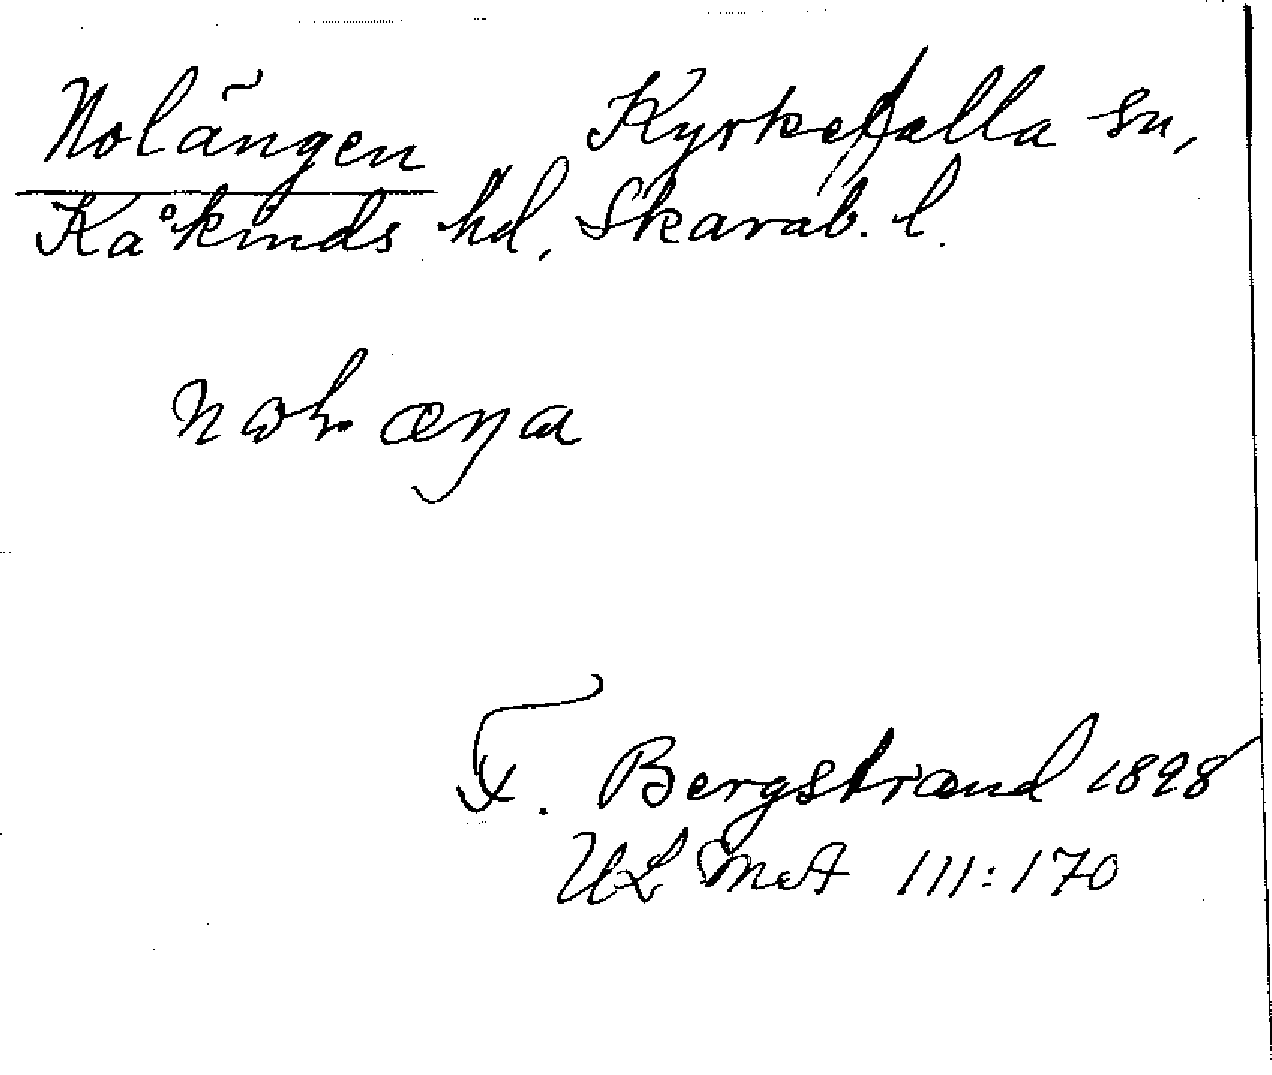 Nolängen Kyrkefalla sn,
Kåkinds hd, Skarab. l.
F. Bergstrand 1898
ULMA 111:170